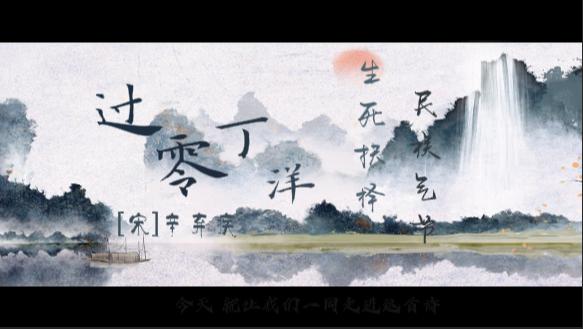 过零丁洋
[宋]辛弃疾
生死抉择
民族气节
今天 就让我们一同走进这首诗